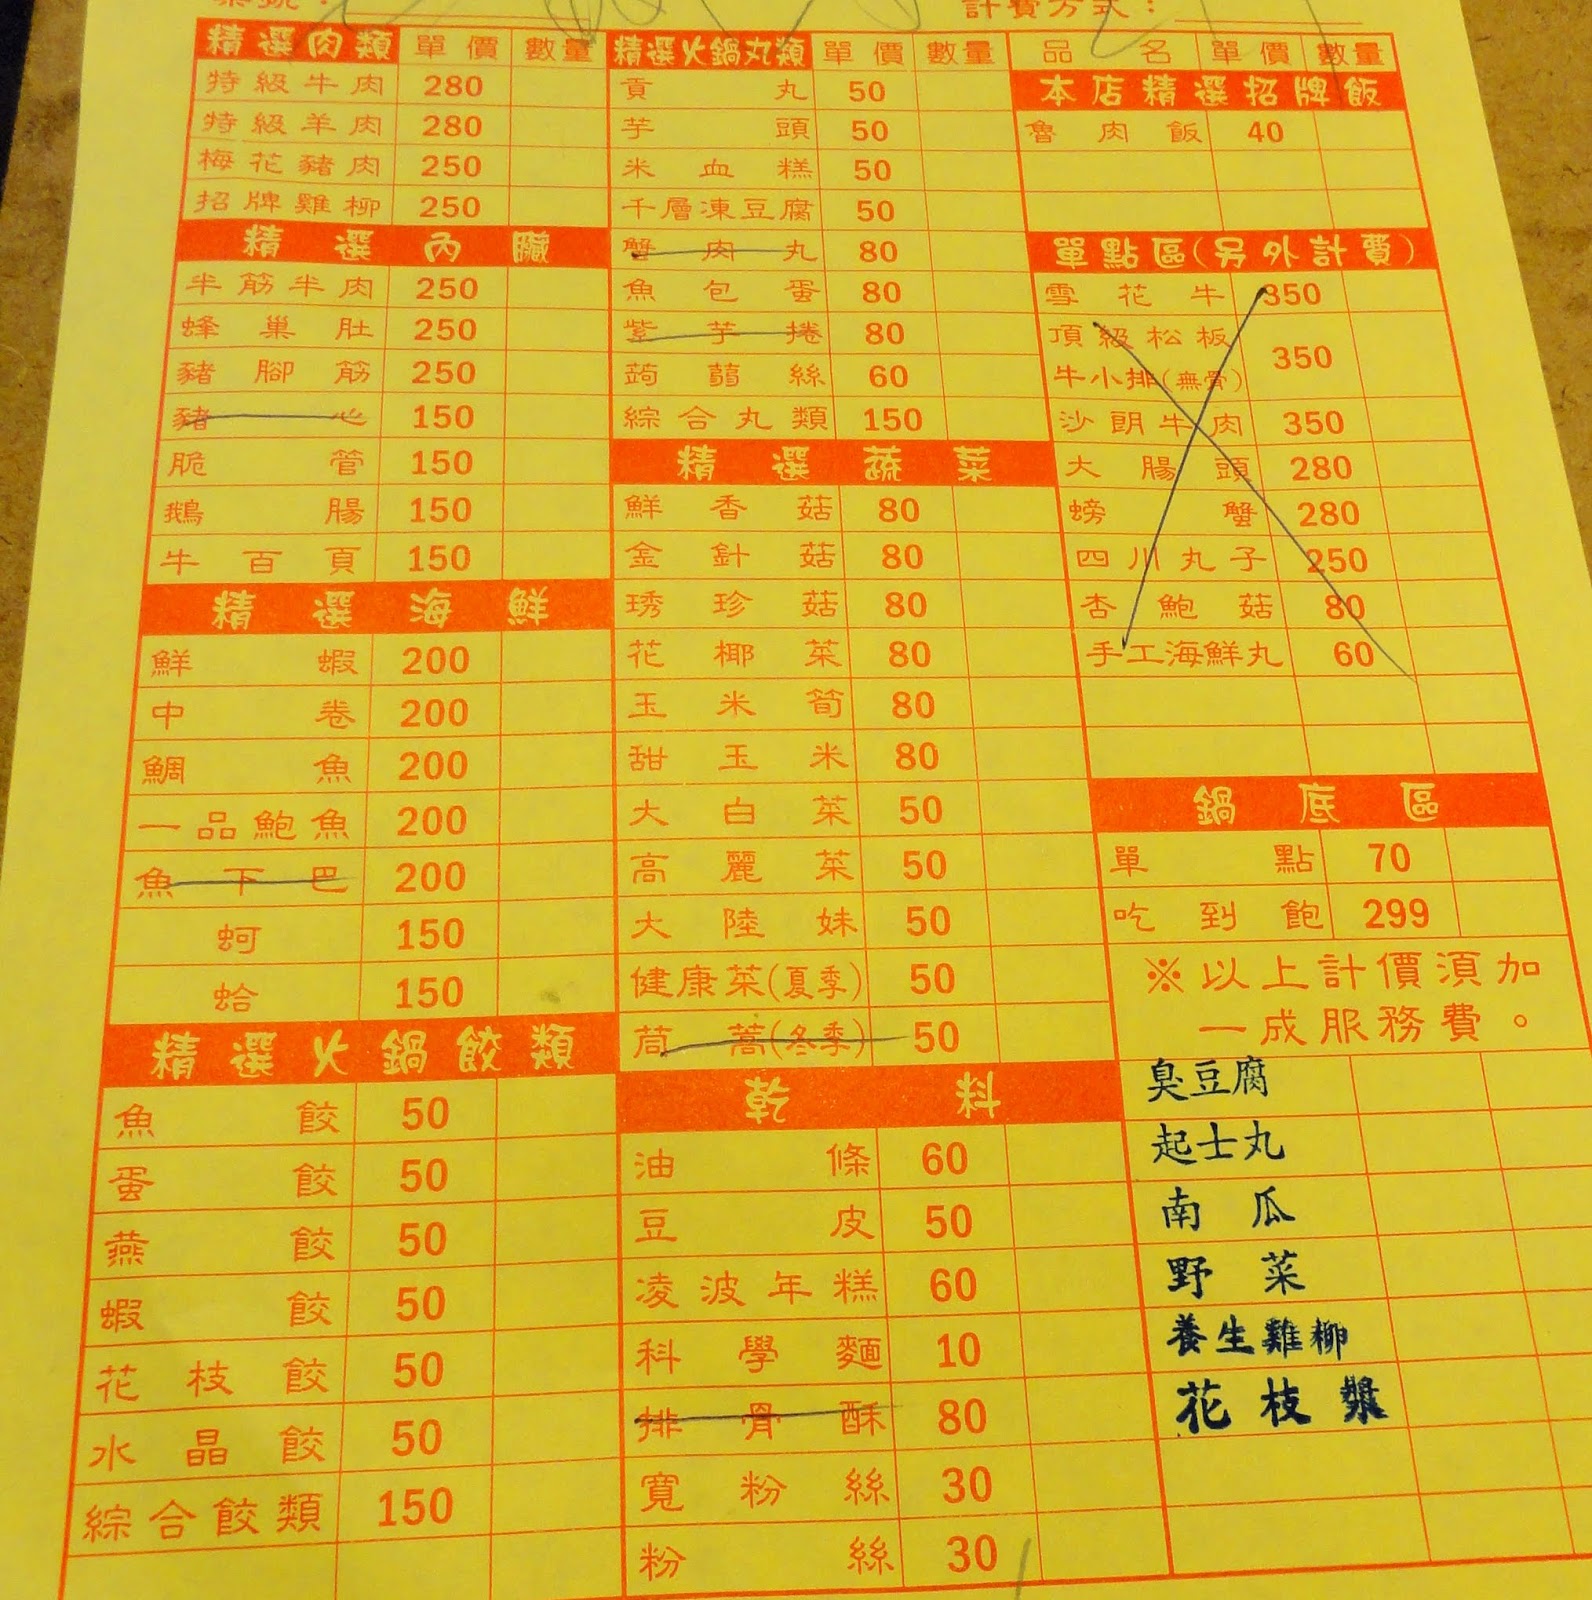 計費方式：
精選肉類 單價 數量
特級牛肉 280
特級羊肉 280
梅花豬肉 250
招牌雞柳 250
精選內臟
半筋半肉 250
蜂巢肚 250
豬腳筋 250
豬心 150
脆管 150
鵝腸 150
牛百頁 150
精選海鮮
鮮蝦 200
中卷 200
鯛魚 200
一品鮑魚 200
魚下巴 200
蚵 150
蛤 150
精選火鍋餃類
魚餃 50
蛋餃 50
燕餃 50
蝦餃 50
花枝餃 50
水晶餃 50
綜合餃類 150
精選火鍋丸類 單價 數量
貢丸 50
芋頭 50
米血糕 50
千層凍豆腐 50
蟹肉丸 80
魚包蛋 80
紫芋捲 80
蒟蒻絲 60
綜合丸類 150
精選蔬菜
鮮香菇 80
金針菇 80
琇珍菇 80
花椰菜 80
玉米筍 80
甜玉米 80
大白菜 50
高麗菜 50
大陸妹 50
健康菜(夏季) 50
茼蒿(冬季) 50
乾料
油條 60
豆皮 50
凌波年糕 60
科學麵 10
排骨酥 80
寬粉絲 30
粉絲 30
品名 單價 數量
本店精選招牌飯
魯肉飯 40
單點區(另外計費)
雪花牛 350
頂級松板
牛小排(無骨) 350
沙朗牛肉 350
大腸頭 280
螃蟹 280
四川丸子 250
杏鮑菇 80
手工海鮮丸 60
鍋底區
單點 70
吃到飽 299
※以上計價須加
一成服務費。
臭豆腐
起士丸
南瓜
野菜
養生雞柳
花枝漿